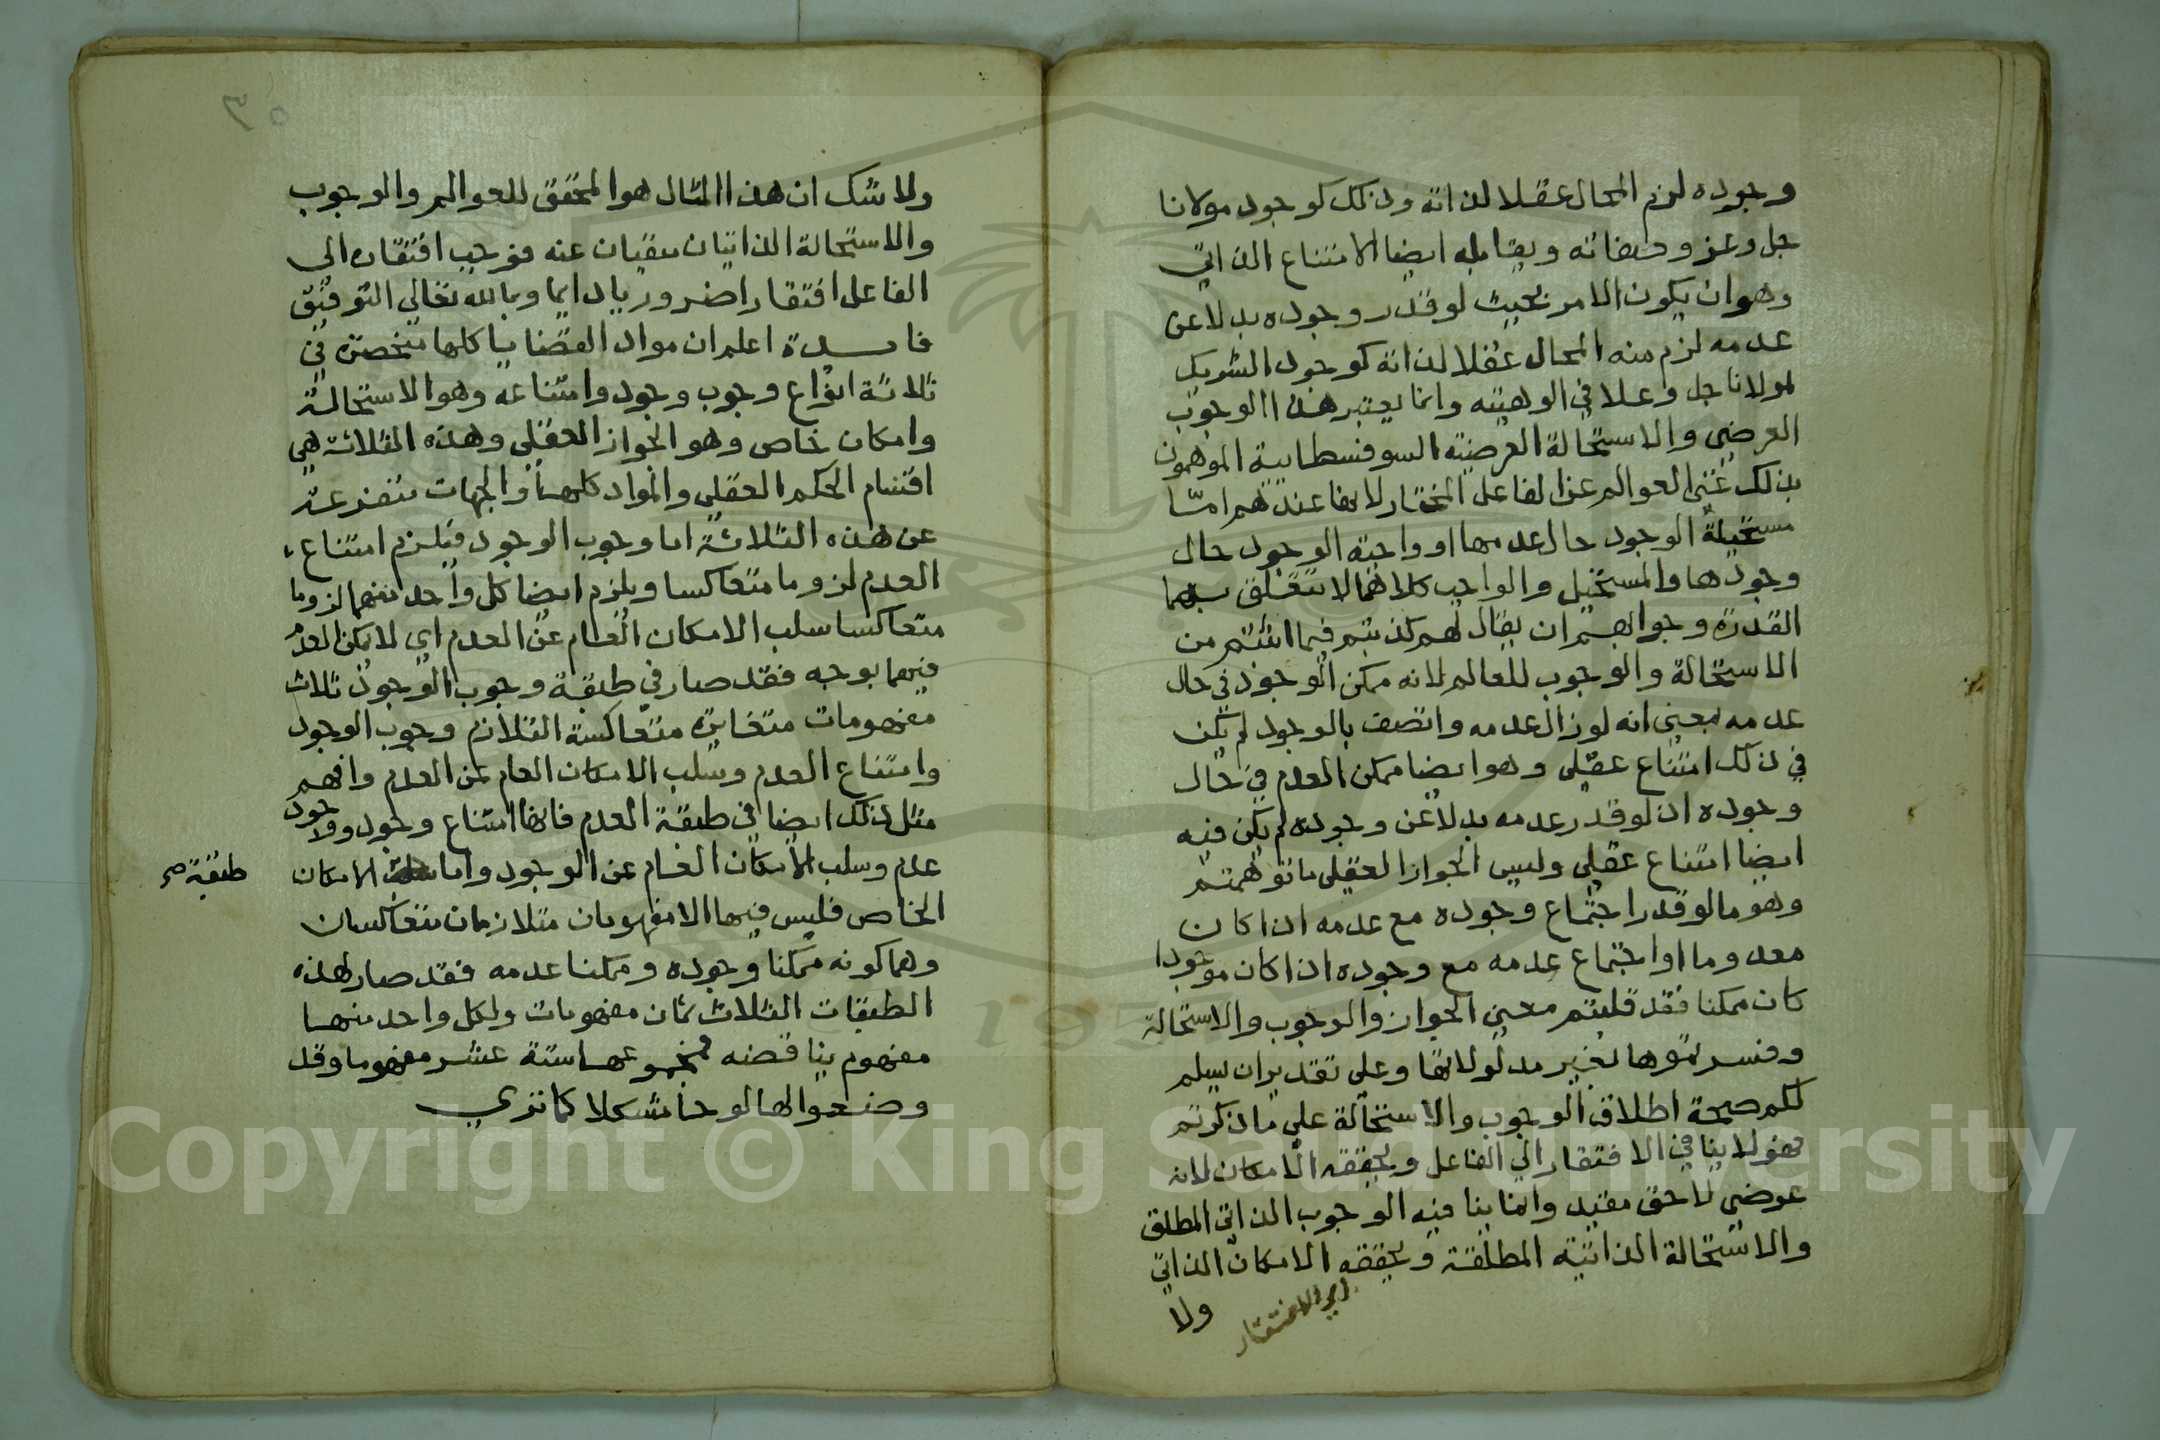 وجوده لزم المحال عقلا لذاته وذلك كوجود مولانا
جل وعز وصفاته ويقابله ايضا الامتناع الذاتي
وهو ان يكون الامر بحيث لو قدر وجوده بدلا عن
عدمه لزم منه المحال عقلا لذاته كوجود الشريك
لمولانا جل وعلا في الوهيته وانما يعتبر هذا الوجوب
العرضي والاستحالة العرضية السوفسطايية الموهمون
بذلك غنى العوالم عن الفاعل المختار لانها عندهم امّا
مستحيلة الوجود حال عدمها او واجبة الوجود حال
وجودها والمستحيل والواجب كلاهما لا تتعلق بهما
القدرة وجوابهم ان يقال لهم كذبتم فيما اثبتم من
الاستحالة والوجوب للعالم لانه ممكن الوجود في حال
عدمه بمعنى انه لو زال عدمه واتصف بالوجود لم يكن
في ذلك امتناع عقلي وهو ايضا ممكن العدم في حال
وجوده اذ لو قدر عدمه بدلا عن وجوده لم يكن فيه
ايضا امتناع عقلي وليس الجواز العقلي ما توهمتم
وهو ما لو قدر اجتماع وجوده مع عدمه اذا كان
معدوما او اجتماع عدمه مع وجوده اذا كان موجودا
كان ممكنا فقد قلبتم معنى الجواز والوجوب والاستحالة
وفسرتموها بغير مدلولاتها وعلى تقدير ان يسلم
لكم صحة اطلاق الوجوب والاستحالة على ما ذكرتم
فهو لا ينافي الافتقار الي الفاعل ويحققه الامكان لانه
عرضي لاحق مقيد وانما ينافيه الوجوب الذاتي المطلق
والاستحالة الذاتية المطلقة ويحققه الامكان الذاتي
اي الافتقار
ولا
ولا شك ان هذا المثال هو المحقق للعوالم والوجوب
والاستحالة الذاتيان منفيان عنه فوجب افتقاره الى
الفاعل افتقارا ضروريا دايما وبالله تعالي التوفيق
فايدة اعلم ان مواد القضايا كلها منحصرة في
ثلاثة انواع وجوب وجود وامتناعه وهو الاستحالة
وامكان خاص وهو الجواز العقلي وهذه الثلاثة هي
اقسام الحكم العقلي والمواد كلها والجهات متفرعة
عن هذه الثلاثة اما وجوب الوجود فيلزم امتناع
العدم لزوما متعاكسا ويلزم ايضا كل واحد منهما لزوما
متعاكسا سلب الامكان العام عن العدم اي لا يمكن العدم
فيهما بوجه فقد صار في طبقة وجوب الوجود ثلاث
مفهومات متغايرة متعاكسة التلازم وجوب الوجود
وامتناع العدم وسلب الامكان العام عن العدم وافهم
مثل ذلك ايضا في طبقة العدم فانها امتناع وجود ووجود
عدم وسلب الامكان العام عن الوجود واما الامكان
طبقة صح
الخاص فليس فيها الا مفهومان متلازمان متعاكسان
وهما كونه ممكنا وجوده وممكنا عدمه فقد صار لهذه
الطبقات الثلاث ثمان مفهومات ولكل واحد منها
مفهوم يناقضه فمجموعها ستة عشر مفهوما وقد
وضعوا لها لوحا مشكلا كما تري
Copyright © King Saud University